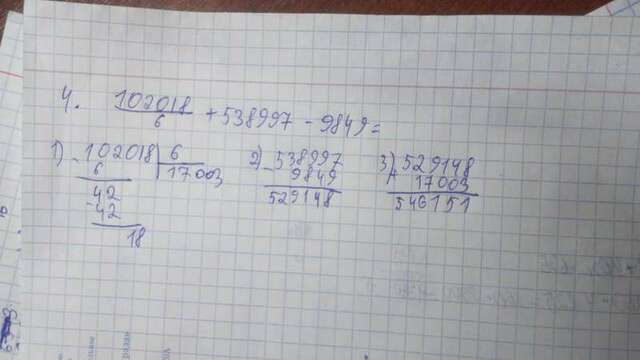 4. 102018/6 + 538997 - 9849 =
1) 102018 | 6
- 6 17003
42
- 42
18
2) 538997
- 9849
529148
3) 529148
+ 17003
546151